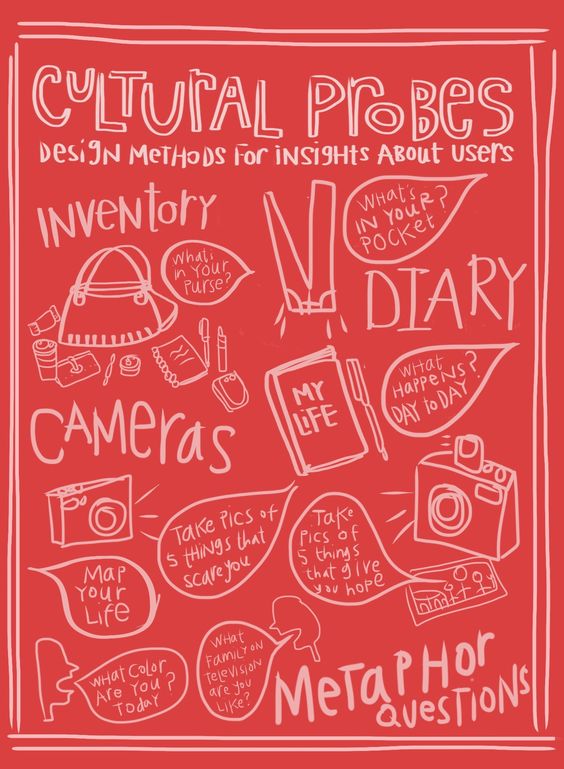 CULTURAL PROBES
DESIGN METHODS FOR INSIGHTS ABOUT USERS
INVENTORY
WHAT'S
IN YOUR
POCKET?
WHATS
IN YOUR
PURSE?
DIARY
MY
LIFE
WHAT
HAPPENS?
DAY to DAY
CAMERAS
TAKE PICS OF
5 THINGS THAT
SCARE YOU
TAKE
PICS OF
5 THINGS
THAT GIVE
YOU HOPE
MAP
YOUR
LIFE
WHAT COLOR
ARE YOU?
TODAY
WHAT
FAMILY ON
TELEVISION
ARE YOU
LIKE?
METAPHOR
QUESTIONS